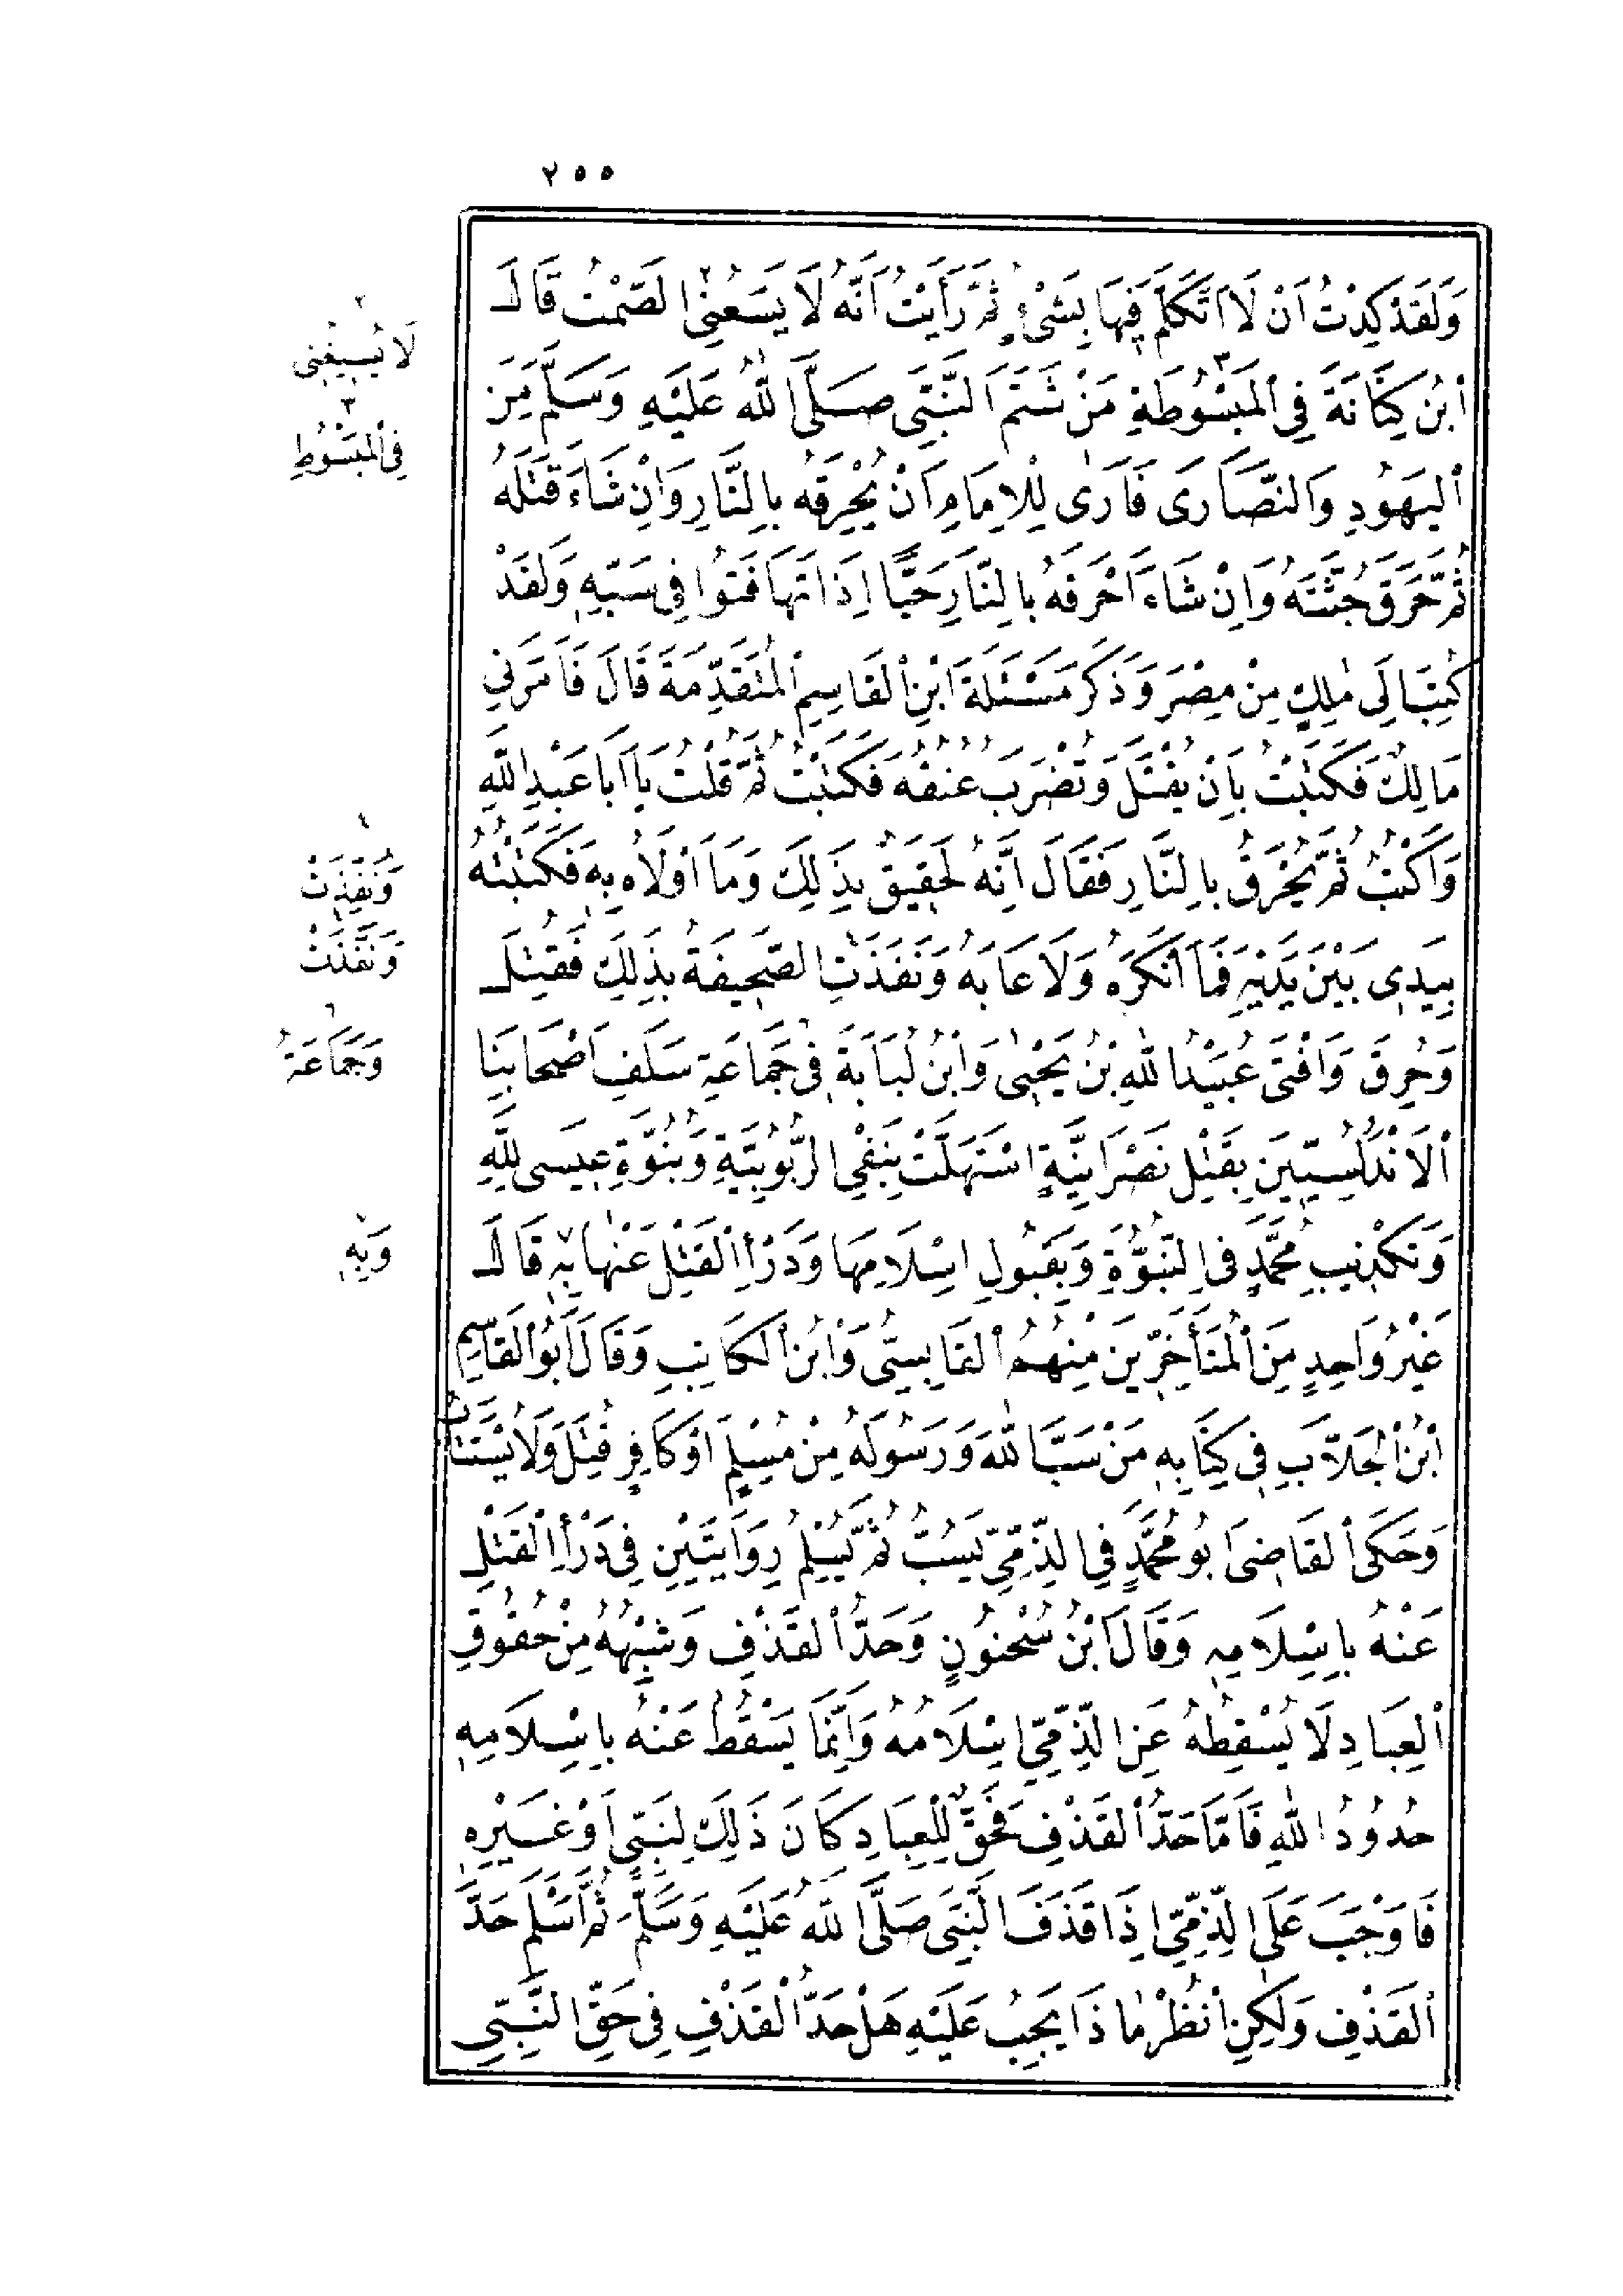 ٢٥٥
وَلَقَدْ كِدْتُ اَنْ لَا اَتَكَلَّمَ فِيهَا بِشَىْءٍ ثُمَّ رَأَيْتُ اَنَّهُ لَا يَسَعُنِى ٢ الصَّمْتُ قَالَ
ابْنُ كِنَانَةَ فِى الْمَبْسُوطَةِ ٣ مَنْ شَتَمَ النَّبِىَّ صَلَّى اللهُ عَلَيْهِ وَسَلَّمَ مِنَ
الْيَهُودِ وَالنَّصَارَى فَاَرَى لِلْاِمَامِ اَنْ يُحْرِقَهُ بِالنَّارِ وَاِنْ شَاءَ قَتَلَهُ
ثُمَّ حَرَقَ جُثَّتَهُ وَاِنْ شَاءَ اَحْرَقَهُ بِالنَّارِ حَيًّا اِذَا تَهَافَتُوا فِى سَبِّهِ وَلَقَدْ
كُتِبَ اِلَى مٰلِكٍ مِنْ مِصْرَ وَذَكَرَ مَسْئَلَةَ ابْنِ الْقَاسِمِ الْمُتَقَدِّمَةَ قَالَ فَاَمَرَنِى
مَالِكٌ فَكَتَبْتُ بِاَنْ يُقْتَلَ وَتُضْرَبَ عُنُقُهُ فَكَتَبْتُ ثُمَّ قُلْتُ يَا اَبَا عَبْدِ اللهِ
وَاَكْتُبُ ثُمَّ يُحْرَقُ بِالنَّارِ فَقَالَ اِنَّهُ لَحَقِيقٌ بِذَلِكَ وَمَا اَوْلَاهُ بِهِ فَكَتَبْتُهُ
بِيَدِى بَيْنَ يَدَيْهِ فَمَا اَنْكَرَهُ وَلَا عَابَهُ وَنَفَذَتِ الصَّحِيفَةُ بِذَلِكَ فَقُتِلَ
وَحُرِقَ وَاَفْتَى عُبَيْدُ اللهِ بْنُ يَحْيٰى وَابْنُ لُبَابَةَ فِى جَمَاعَةِ ٦ سَلَفِ اَصْحَابِنَا
الْاَنْدَلُسِيِّينَ بِقَتْلِ نَصْرَانِيَّةٍ اسْتَهَلَّتْ بِنَفْىِ الرُّبُوبِيَّةِ وَبُنُوَّةِ عِيسَى لِلّهِ
وَتَكْذِيبِ مُحَمَّدٍ فِى النُّبُوَّةِ وَبِقَبُولِ اِسْلَامِهَا وَدَرْأِ الْقَتْلِ عَنْهَا بِهِ ٧ قَالَ
غَيْرُ وَاحِدٍ مِنَ الْمُتَأَخِّرِينَ مِنْهُمُ الْقَابِسِىُّ وَابْنُ الْكَاتِبِ وَقَالَ اَبُو الْقَاسِمِ
ابْنُ الْجَلَّابِ فِى كِتَابِهِ مَنْ سَبَّ اللهَ وَرَسُولَهُ مِنْ مُسْلِمٍ اَوْ كَافِرٍ قُتِلَ وَلَا يُسْتَتَابُ
وَحَكَى الْقَاضِى اَبُو مُحَمَّدٍ فِى الذِّمِّىِّ يَسُبُّ ثُمَّ يُسْلِمُ رِوَايَتَيْنِ فِى دَرْأِ الْقَتْلِ
عَنْهُ بِاِسْلَامِهِ وَقَالَ ابْنُ سُحْنُونٍ وَحَدُّ الْقَذْفِ وَشِبْهُهُ مِنْ حُقُوقِ
الْعِبَادِ لَا يُسْقِطُهُ عَنِ الذِّمِّىِّ اِسْلَامُهُ وَاِنَّمَا يَسْقُطُ عَنْهُ بِاِسْلَامِهِ
حُدُودُ اللهِ فَاَمَّا حَدُّ الْقَذْفِ فَحَقٌّ لِلْعِبَادِ كَانَ ذَلِكَ لِنَبِىٍّ اَوْ غَيْرِهِ
فَاَوْجَبَ عَلَى الذِّمِّىِّ اِذَا قَذَفَ النَّبِىَّ صَلَّى اللهُ عَلَيْهِ وَسَلَّمَ ثُمَّ اَسْلَمَ حَدَّ
الْقَذْفِ وَلَكِنِ انْظُرْ مَا ذَا يَجِبُ عَلَيْهِ هَلْ حَدُّ الْقَذْفِ فِى حَقِّ النَّبِىِّ
٢
لَا يُسِيغُنِى
٣
فِى الْمَبْسُوطِ
وَنُفِّذَتْ
وَنَفَّذْتُ
٦
وَجَمَاعَةُ
٧
وَبِهِ